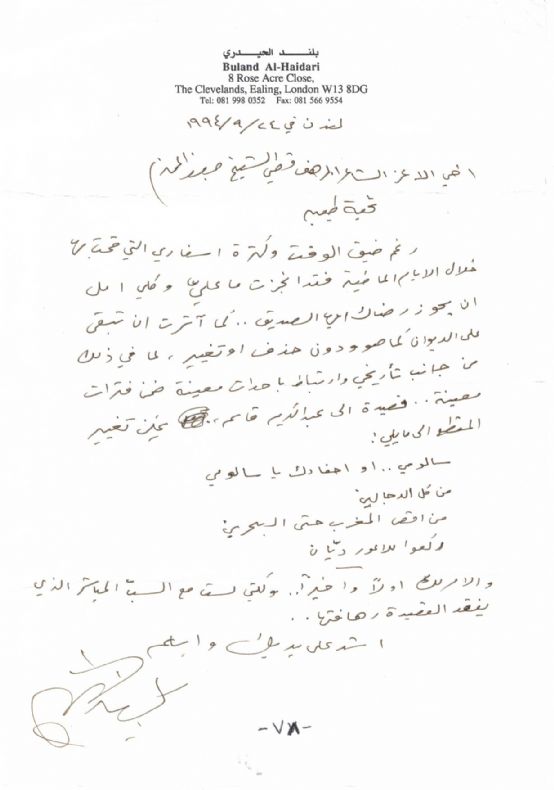 بلنــد الحيــدري
Buland Al-Haidari
8 Rose Acre Close,
The Clevelands, Ealing, London W13 8DG
Tel: 081 998 0352 Fax: 081 566 9554
لندن في ٢٤/٩/١٩٩٤
اخي الاعز الشاعر المرهف الشيخ
تحية طيبة
رغم ضيق الوقت وكثرة اسفاري التي قمت بها
خلال الايام الماضية فقد انجزت ما عليّ وكلي امل
ان يحوز رضاك ايها الصديق .. كما آثرت ان تبقى
على الديوان كما هو ودون حذف او تغيير ، لما في ذلك
من جانب تأريخي وارتباط باحداث معينة ضمن فترات
معينة .. قصيدة الى عبدالكريم قاسم .. يمكن تغيير
المقطع الى مايلي :
سالومي .. او احفادك يا سالومي
من كل الدجالين
من اقصى المغرب حتى البحرين
ركعوا للاعور ديّان
والامر لك اولاً واخيراً .. ولكني لست مع السبّ المباشر الذي
يفقد القصيدة رهافتها ..
اشد على يديك واسلم
-٧٨-